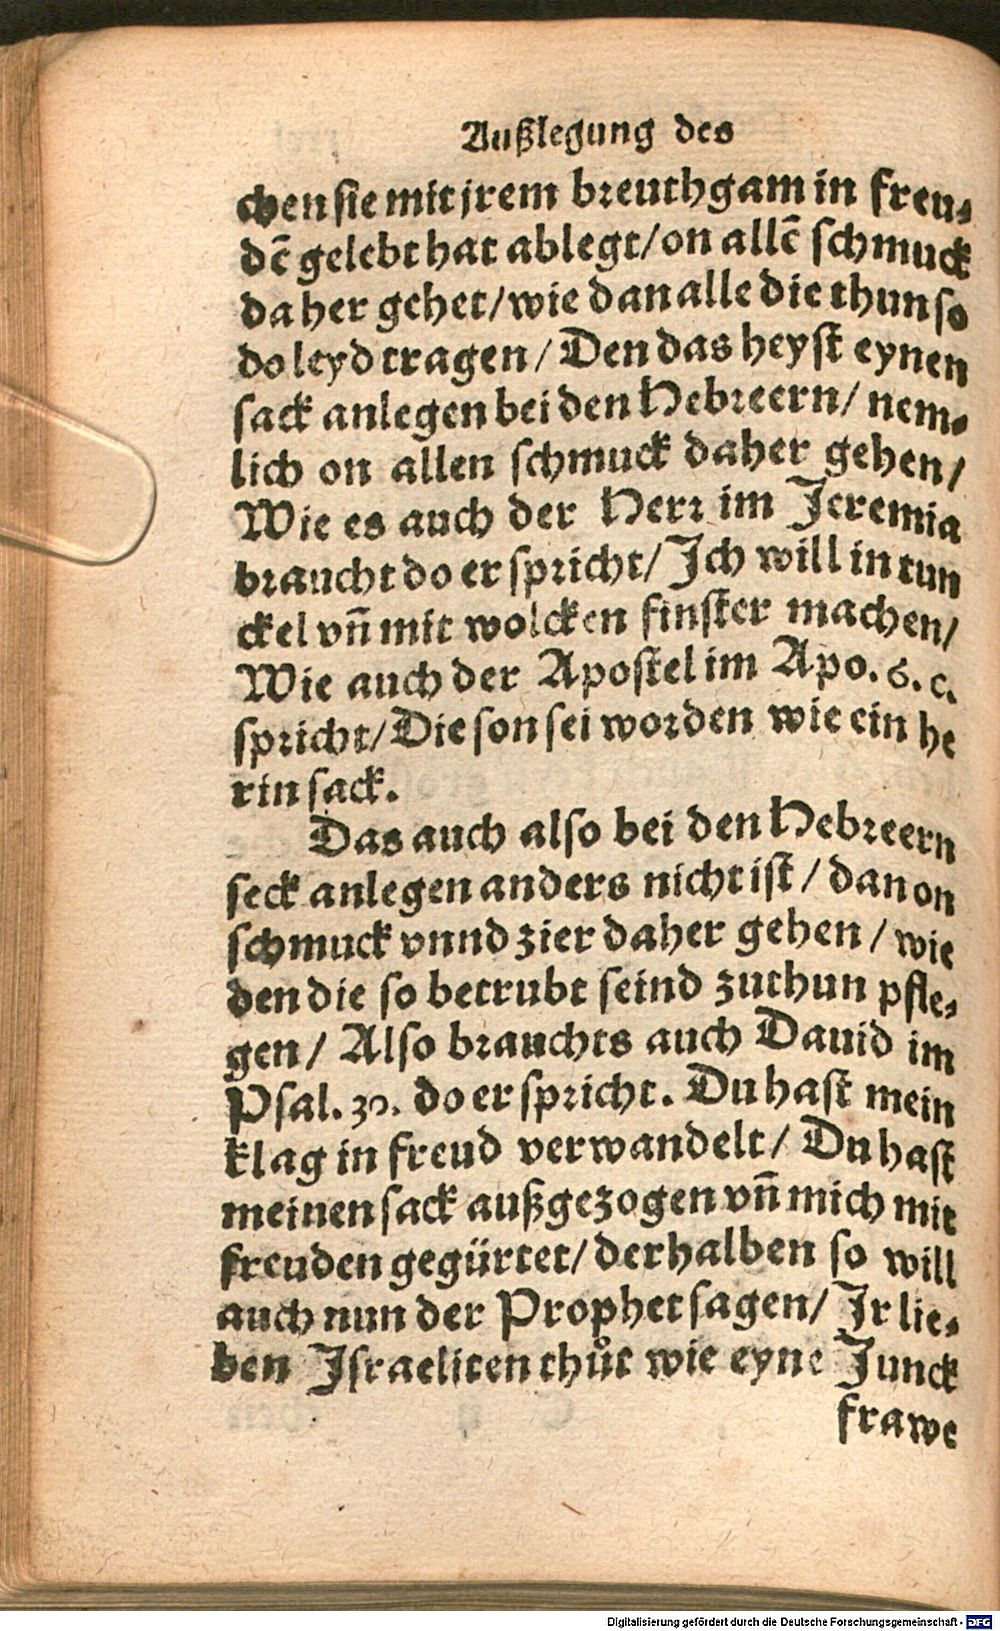 Außlegung des
chen sie mit jrem breuthgam in freu-
dē gelebt hat ablegt/on allē schmuck
daher gehet/wie dan alle die thun so
do leyd tragen/ Den das heyst eynen
sack anlegen bei den Hebreern/ nem-
lich on allen schmuck daher gehen/
Wie es auch der Herr im Jeremia
braucht do er spricht/Ich will in tun
ckel vñ mit wolcken finster machen/
Wie auch der Apostel im Apo. 6. c.
spricht/Die son sei worden wie ein he
rin sack.
Das auch also bei den Hebreern
seck anlegen anders nicht ist / dan on
schmuck vnnd zier daher gehen / wie
den die so betrubt seind zuthun pfle-
gen/ Also brauchts auch Dauid im
Psal. 30. do er spricht. Du hast mein
klag in freud verwandelt/ Du hast
meinen sack außgezogen vñ mich mit
freuden gegürtet/ derhalben so will
auch nun der Prophet sagen/ Jr lie-
ben Israeliten thůt wie eyne Junck
frawe
Digitalisierung gefördert durch die Deutsche Forschungsgemeinschaft - DFG